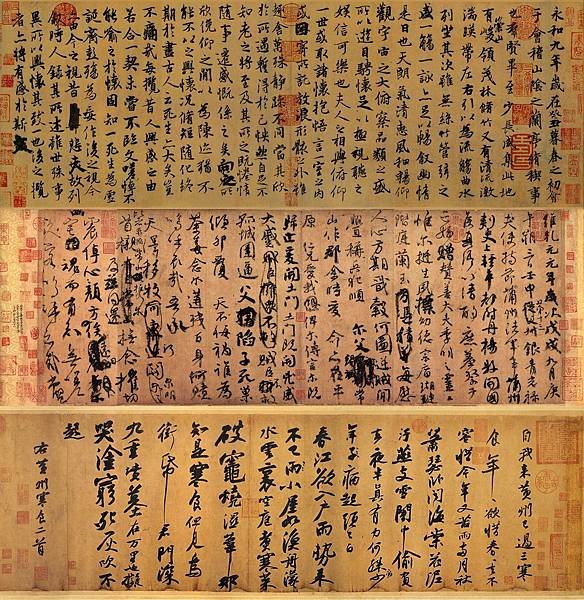 永和九年歲在癸丑暮春之初會
于會稽山陰之蘭亭脩稧事
也群賢畢至少長咸集此地
有崇山峻領茂林脩竹又有清流激
湍暎帶左右引以為流觴曲水
列坐其次雖無絲竹管弦之
盛一觴一詠亦足以暢敘幽情
是日也天朗氣清惠風和暢仰
觀宇宙之大俯察品類之盛
所以遊目騁懷足以極視聽之
娛信可樂也夫人之相與俯仰
一世或取諸懷抱悟言一室之內
或因寄所託放浪形骸之外雖
趣舍萬殊靜躁不同當其欣
於所遇蹔得於己怏然自足不
知老之將至及其所之既惓情
隨事遷感慨係之矣向之所
欣俛仰之閒以為陳迹猶不
能不以之興懷況脩短隨化終
期於盡古人云死生亦大矣豈
不痛哉每攬昔人興感之由
若合一契未嘗不臨文嗟悼不
能喻之於懷固知一死生為虛
誕齊彭殤為妄作後之視今
亦由今之視昔悲夫故列
敘時人錄其所述雖世殊事
異所以興懷其致一也後之攬
者亦將有感於斯文
維乾元元年歲次戊戌九月庚
午朔三日壬申第十三叔銀青光祿
夫使持節蒲州諸軍事蒲州
刺史上輕車都尉丹楊縣開國
侯真卿以清酌庶羞祭于
亡姪贈贊善大夫季明之靈曰
惟爾挺生夙標幼德宗廟瑚璉
階庭蘭玉每慰
人心方期戩穀何圖逆賊閒
釁稱兵犯順爾父竭誠常
山作郡余時受命亦在平
原仁兄愛我俾爾傳言爾既
歸止爰開土門土門既開凶威
大蹙賊臣不救
孤城圍逼父陷子死巢
傾卵覆天不悔禍誰為
荼毒念爾遘殘百身何贖
嗚乎哀哉吾承
天澤移牧河關泉明
比者再陷常山攜爾
首櫬及茲同還撫念摧切
震悼心顏方俟遠日
卜爾幽宅
魂而有知無嗟
久客嗚呼哀哉尚饗
自我來黃州已過三寒
食年年欲惜春春去不
容惜今年又苦雨兩月秋
蕭瑟臥聞海棠花泥
汙燕支雪闇中偷負
去夜半真有力何殊病少
年病起頭已白
春江欲入戶雨勢來
不已雨小屋如漁舟濛濛
水雲裏空庖煮寒菜
破竈燒濕葦那
知是寒食但見烏
銜帋君門深
九重墳墓在萬里也擬
哭塗窮死灰吹不
起
右黃州寒食二首